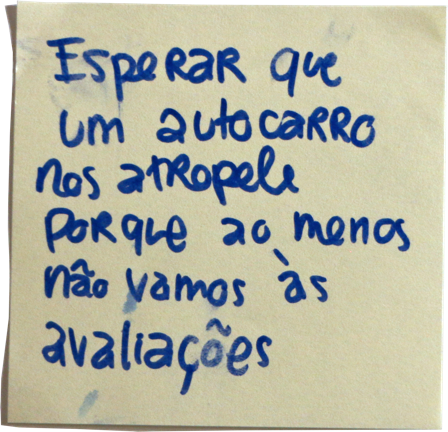 Esperar que
um autocarro
nos atropele
porque ao menos
não vamos às
avaliações